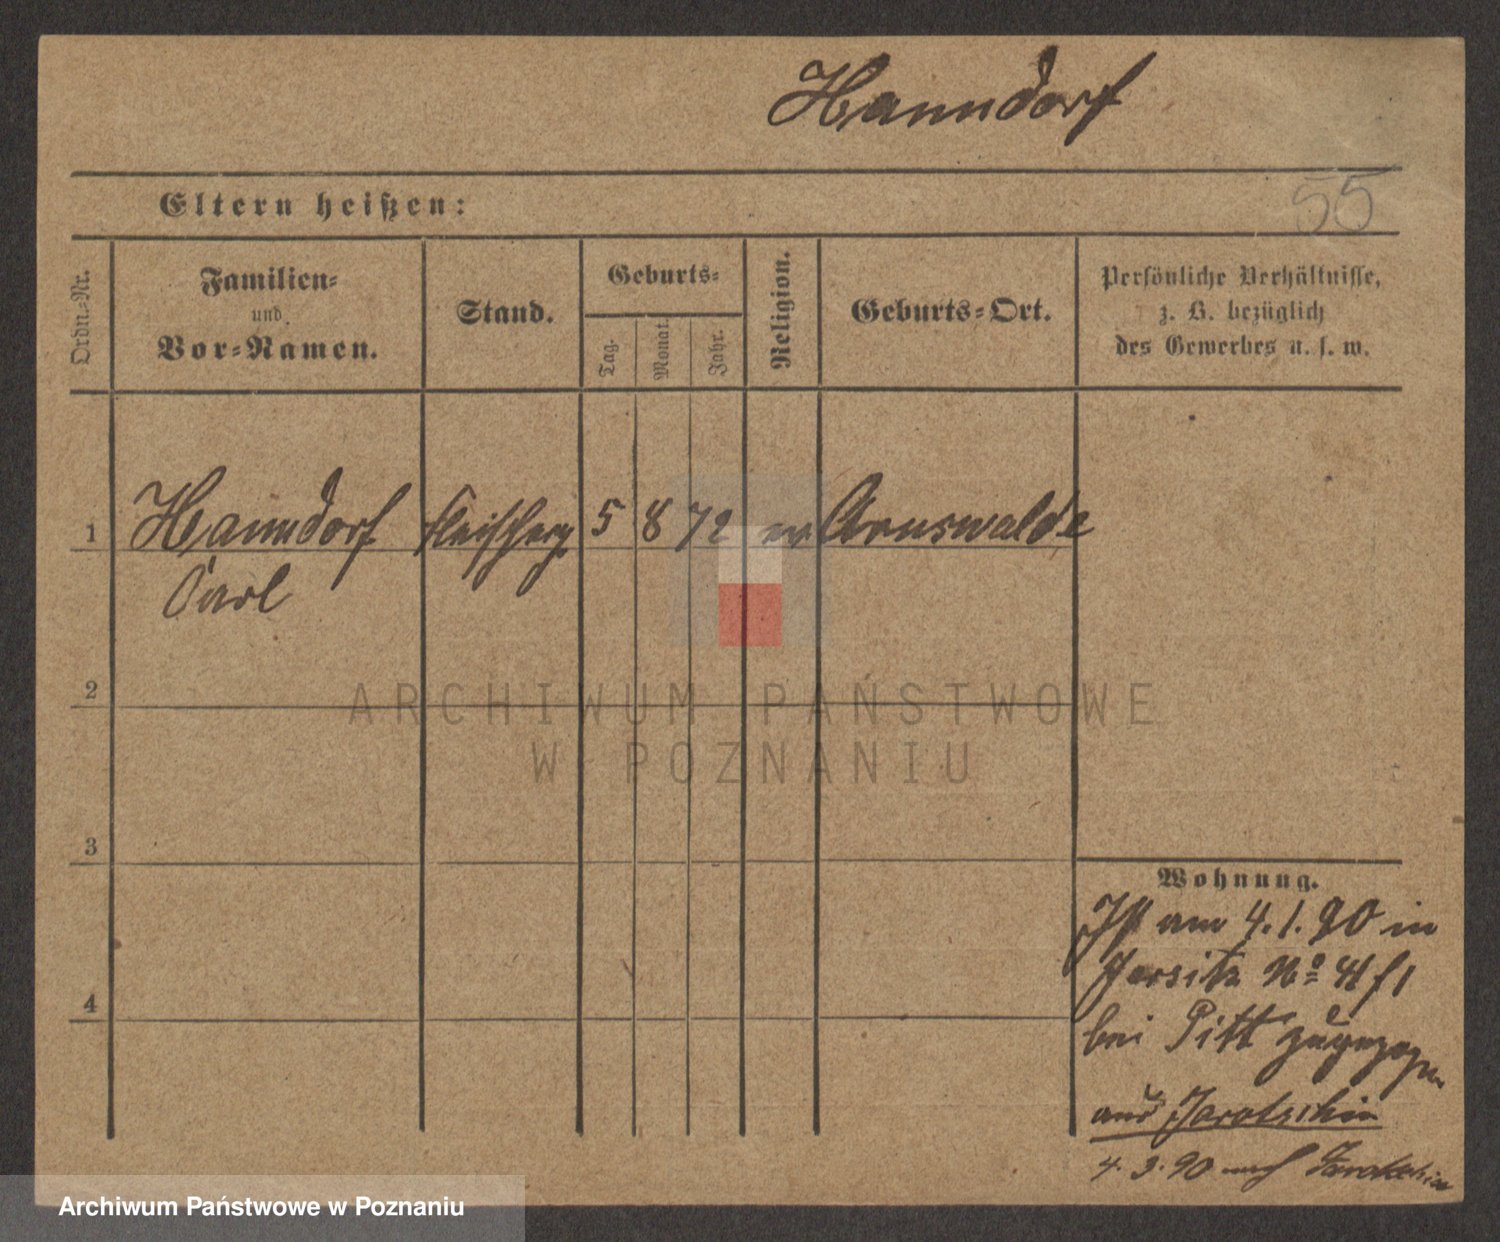 Hanndorf
55
Eltern heißen:
Ordn.-Nr.
Familien-
und
Vor-Namen.
Stand.
Geburts-
Tag.
Monat.
Jahr.
Religion.
Geburts-Ort.
Persönliche Verhältnisse,
z. B. bezüglich
des Gewerbes u. s. w.
1 Hanndorf 5 8 72 ev Arnswalde
Carl
2
ARCHIWUM PAŃSTWOWE
W POZNANIU
3
4
Wohnung.
Ist am 4.1.90 in
Jersitz No
bei Pitt zugezogen
aus Jarotschin
4.3.90 nach Jarotschin
Archiwum Państwowe w Poznaniu